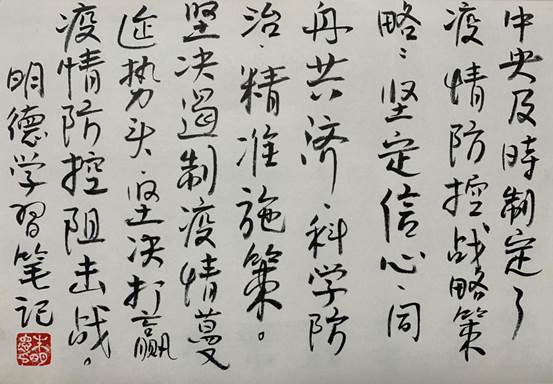 中央及时制定了
疫情防控战略策
略：坚定信心、同
舟共济、科学防
治、精准施策。
坚决遏制疫情蔓
延势头、坚决打赢
疫情防控阻击战。
明德学习笔记